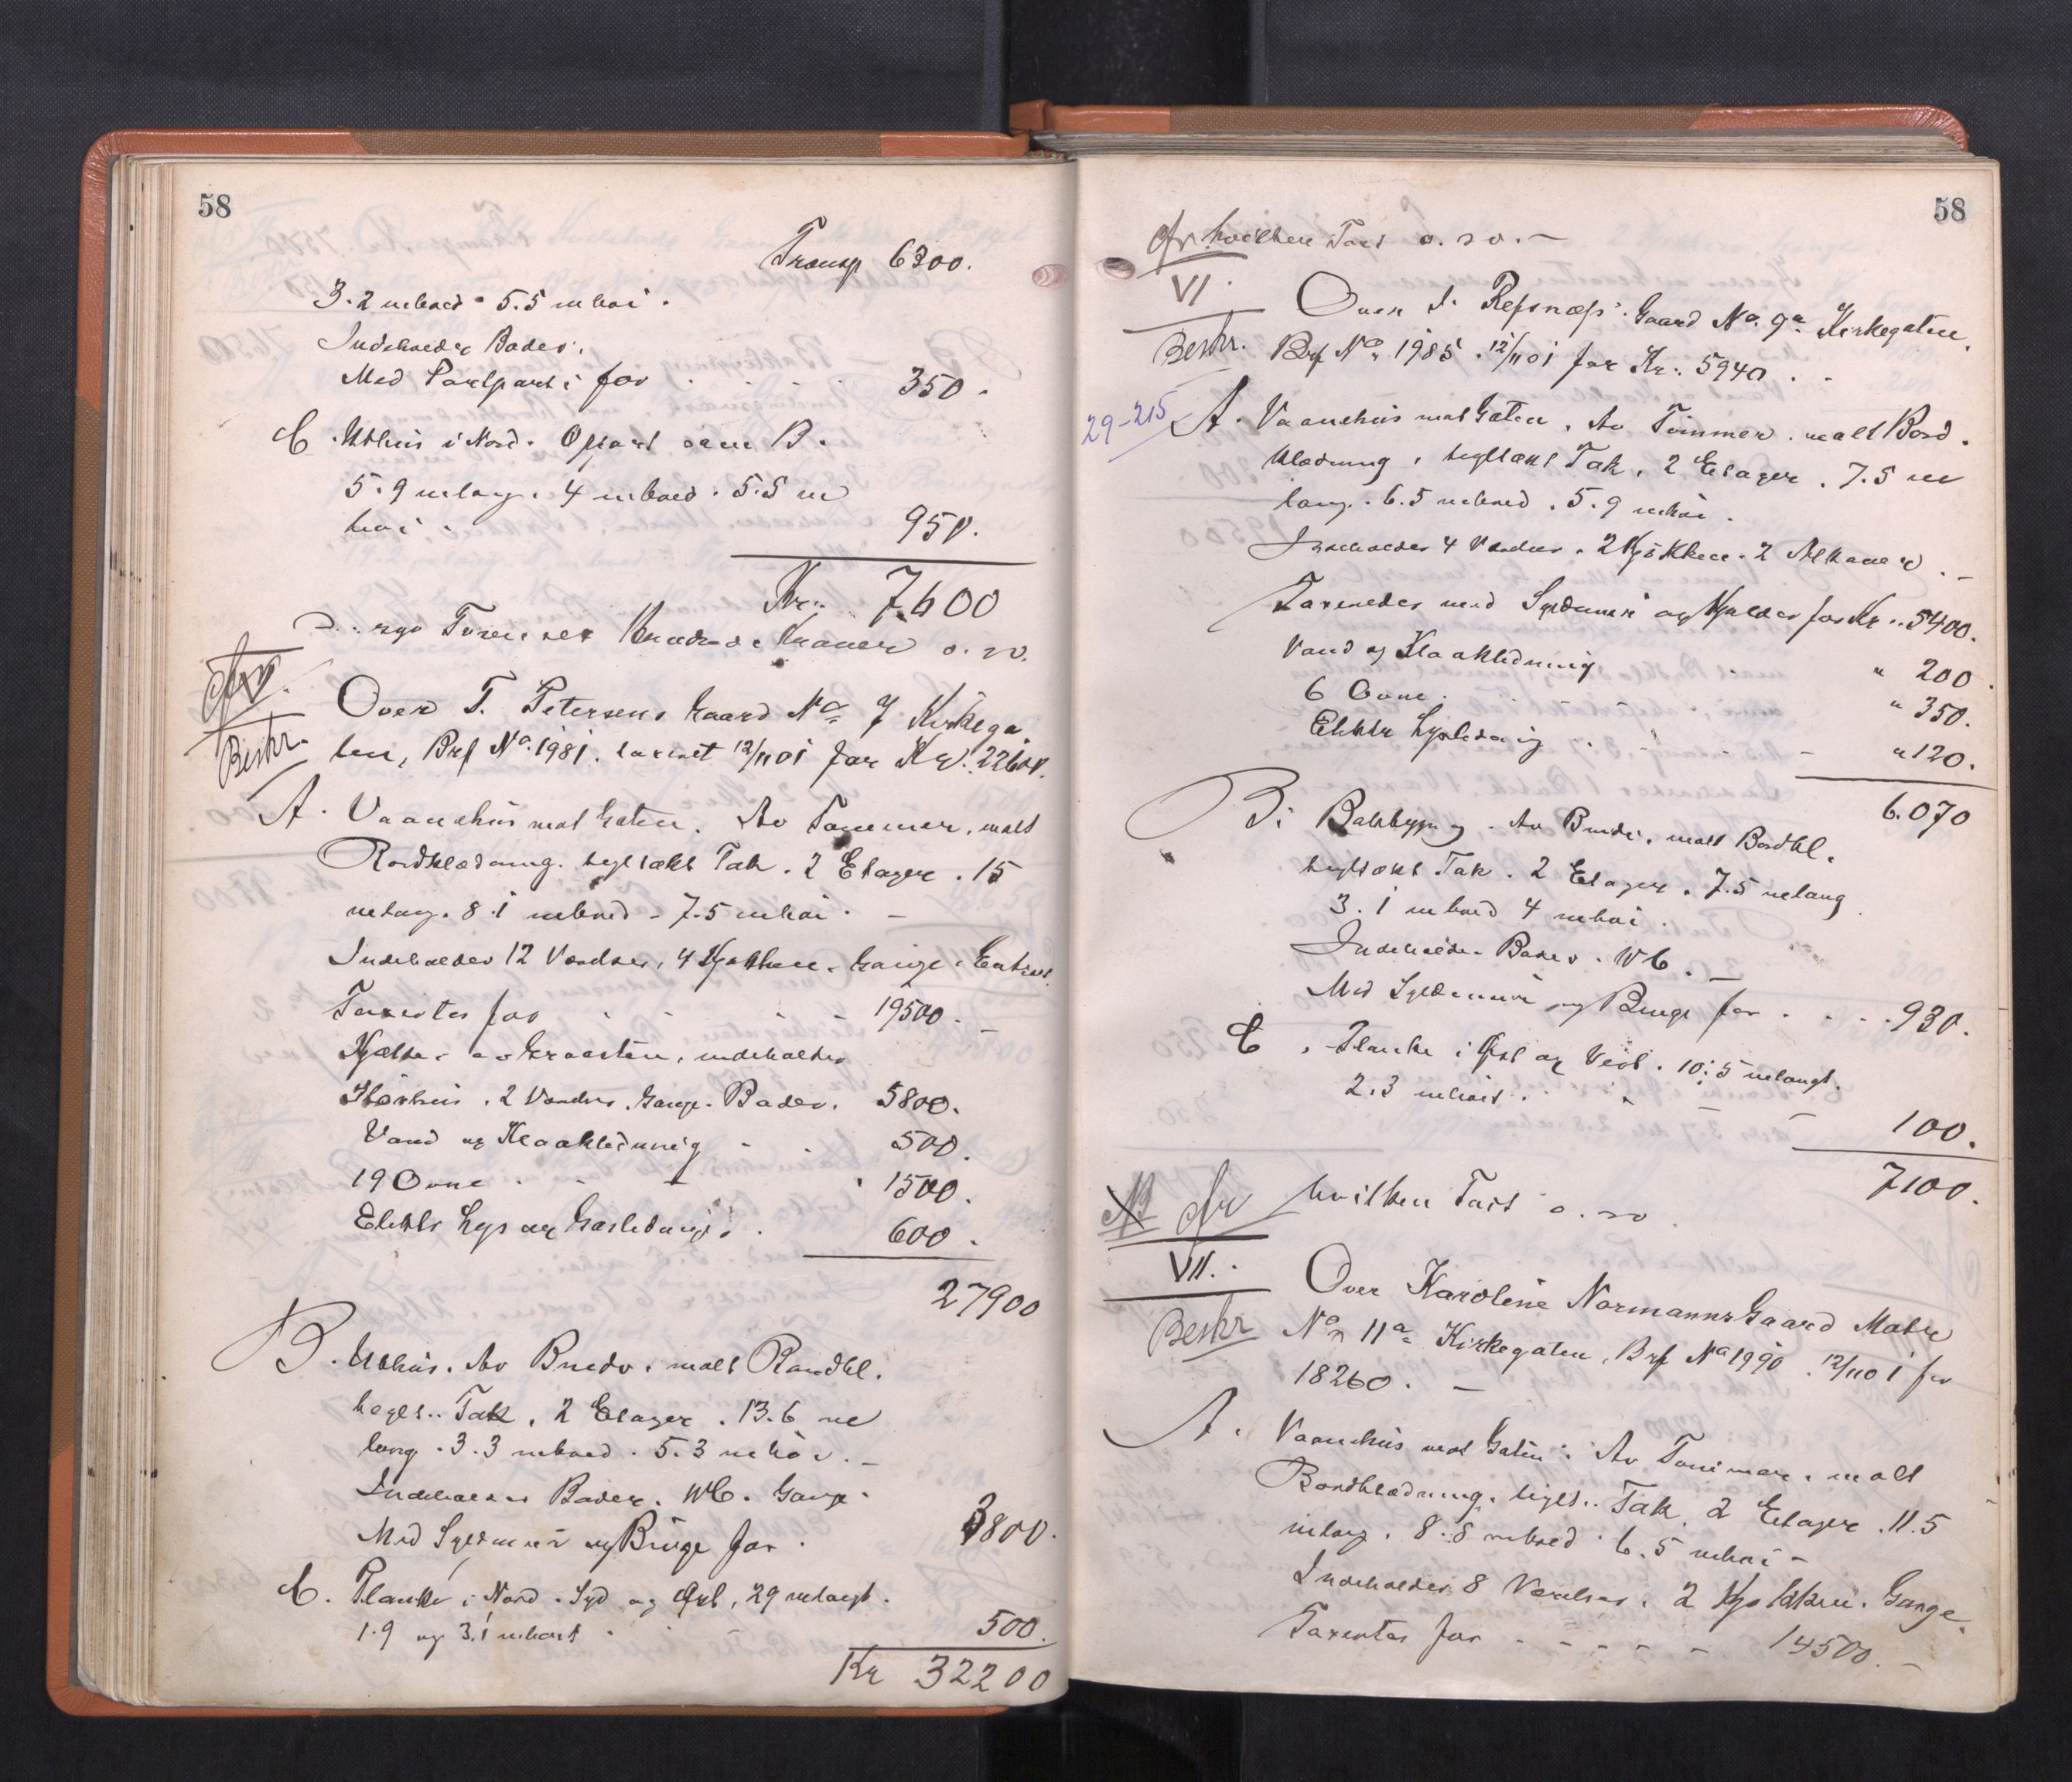 58
Transp 6300.
3.2 m bred. 5.5 m høi.
Indeholder Boder.
Med Partpart i for 350.
C. Uthus i Nord. Opført som B.
5.9 m lang. 4 m bred. 5.5 m
høi. 950.
Kr. 7600
o. sv.
Over T. Petersens Gaard No 7 Kirkega-
ten, Brf No. 1981. taxeret 12/11 01 for Kr. 22600.
Beskr.
A. Vaanehus mot Gaten. Av Tømmer, malt
Bordklædning. tegltækt Tak. 2 Etager. 15
m lang. 8.1 m bred. 7.5 m høi. –
Indeholder 12 Værelser, 4 Kjøkken. Gange. Entreer.
Taxertes for 19500. –
Kjælder av Graasten, indeholder
2 Værelser. Gange. Boder. 5800.
Vand og Kloakledning 500.
19 Ovne 1500.
Elektr Lys og Gasledning. 600.
27900
B. Uthus. Av Bindv. malt Bordkl.
tegls.. Tak. 2 Etager. 13.6 m
lang. 3.3 m bred. 5.3 m høi. –
Indeholder Boder. WC. Gange.
Med Syldmur og Binge for. 3800.
C. Planke i Nord. Syd og Øst, 29 m langt.
1.9 og 3.1 m høit 500.
Kr 32200
58
hvilken Taxt o. sv. –
VI.
Over J. Refsnæs' Gaard No. 9a Kirkegaten.
Beskr. Brf No. 1985. 12/11 01 for Kr. 5940.
29-215
A. Vaanehus mot Gaten. Av Tømmer. malt Bord-
klædning, tegltækt Tak. 2 Etager. 7.5 m
lang. 6.5 m bred. 5.9 m høi.
Indeholder 4 Værelser. 2 Kjøkken. 2 Alkover. –
Taxeredes med Syldmur og Kjælder for Kr. 5400.
Vand og Kloakledning " 200.
6 Ovne. " 350.
Elektr Lysledning " 120.
6.070
B. Bakbygning. Av Bindv. malt Bordkl.
tegltækt Tak. 2 Etager. 7.5 m lang
3.1 m bred 4 m høi.
Indeholder Boder. WC. –
Med Syldmur og Binge for 930.
C. Planke i Øst og Vest. 10.5 m langt.
2.3 m høit. 100.
7100.
hvilken Taxt o. sv.
VII.
Over Karoline Normanns Gaard Matr
Beskr No 11a Kirkegaten, Brf No 1990. 12/11 01 for
18260. –
A. Vaanehus mot Gaten. Av Tømmer. malt
Bordklædning. tegls.. Tak. 2 Etager. 11.5
m lang. 8.8 m bred. 6.5 m høi –
Indeholder 8 Værelser. 2 Kjøkken. Gange.
Taxertes for 14500. –